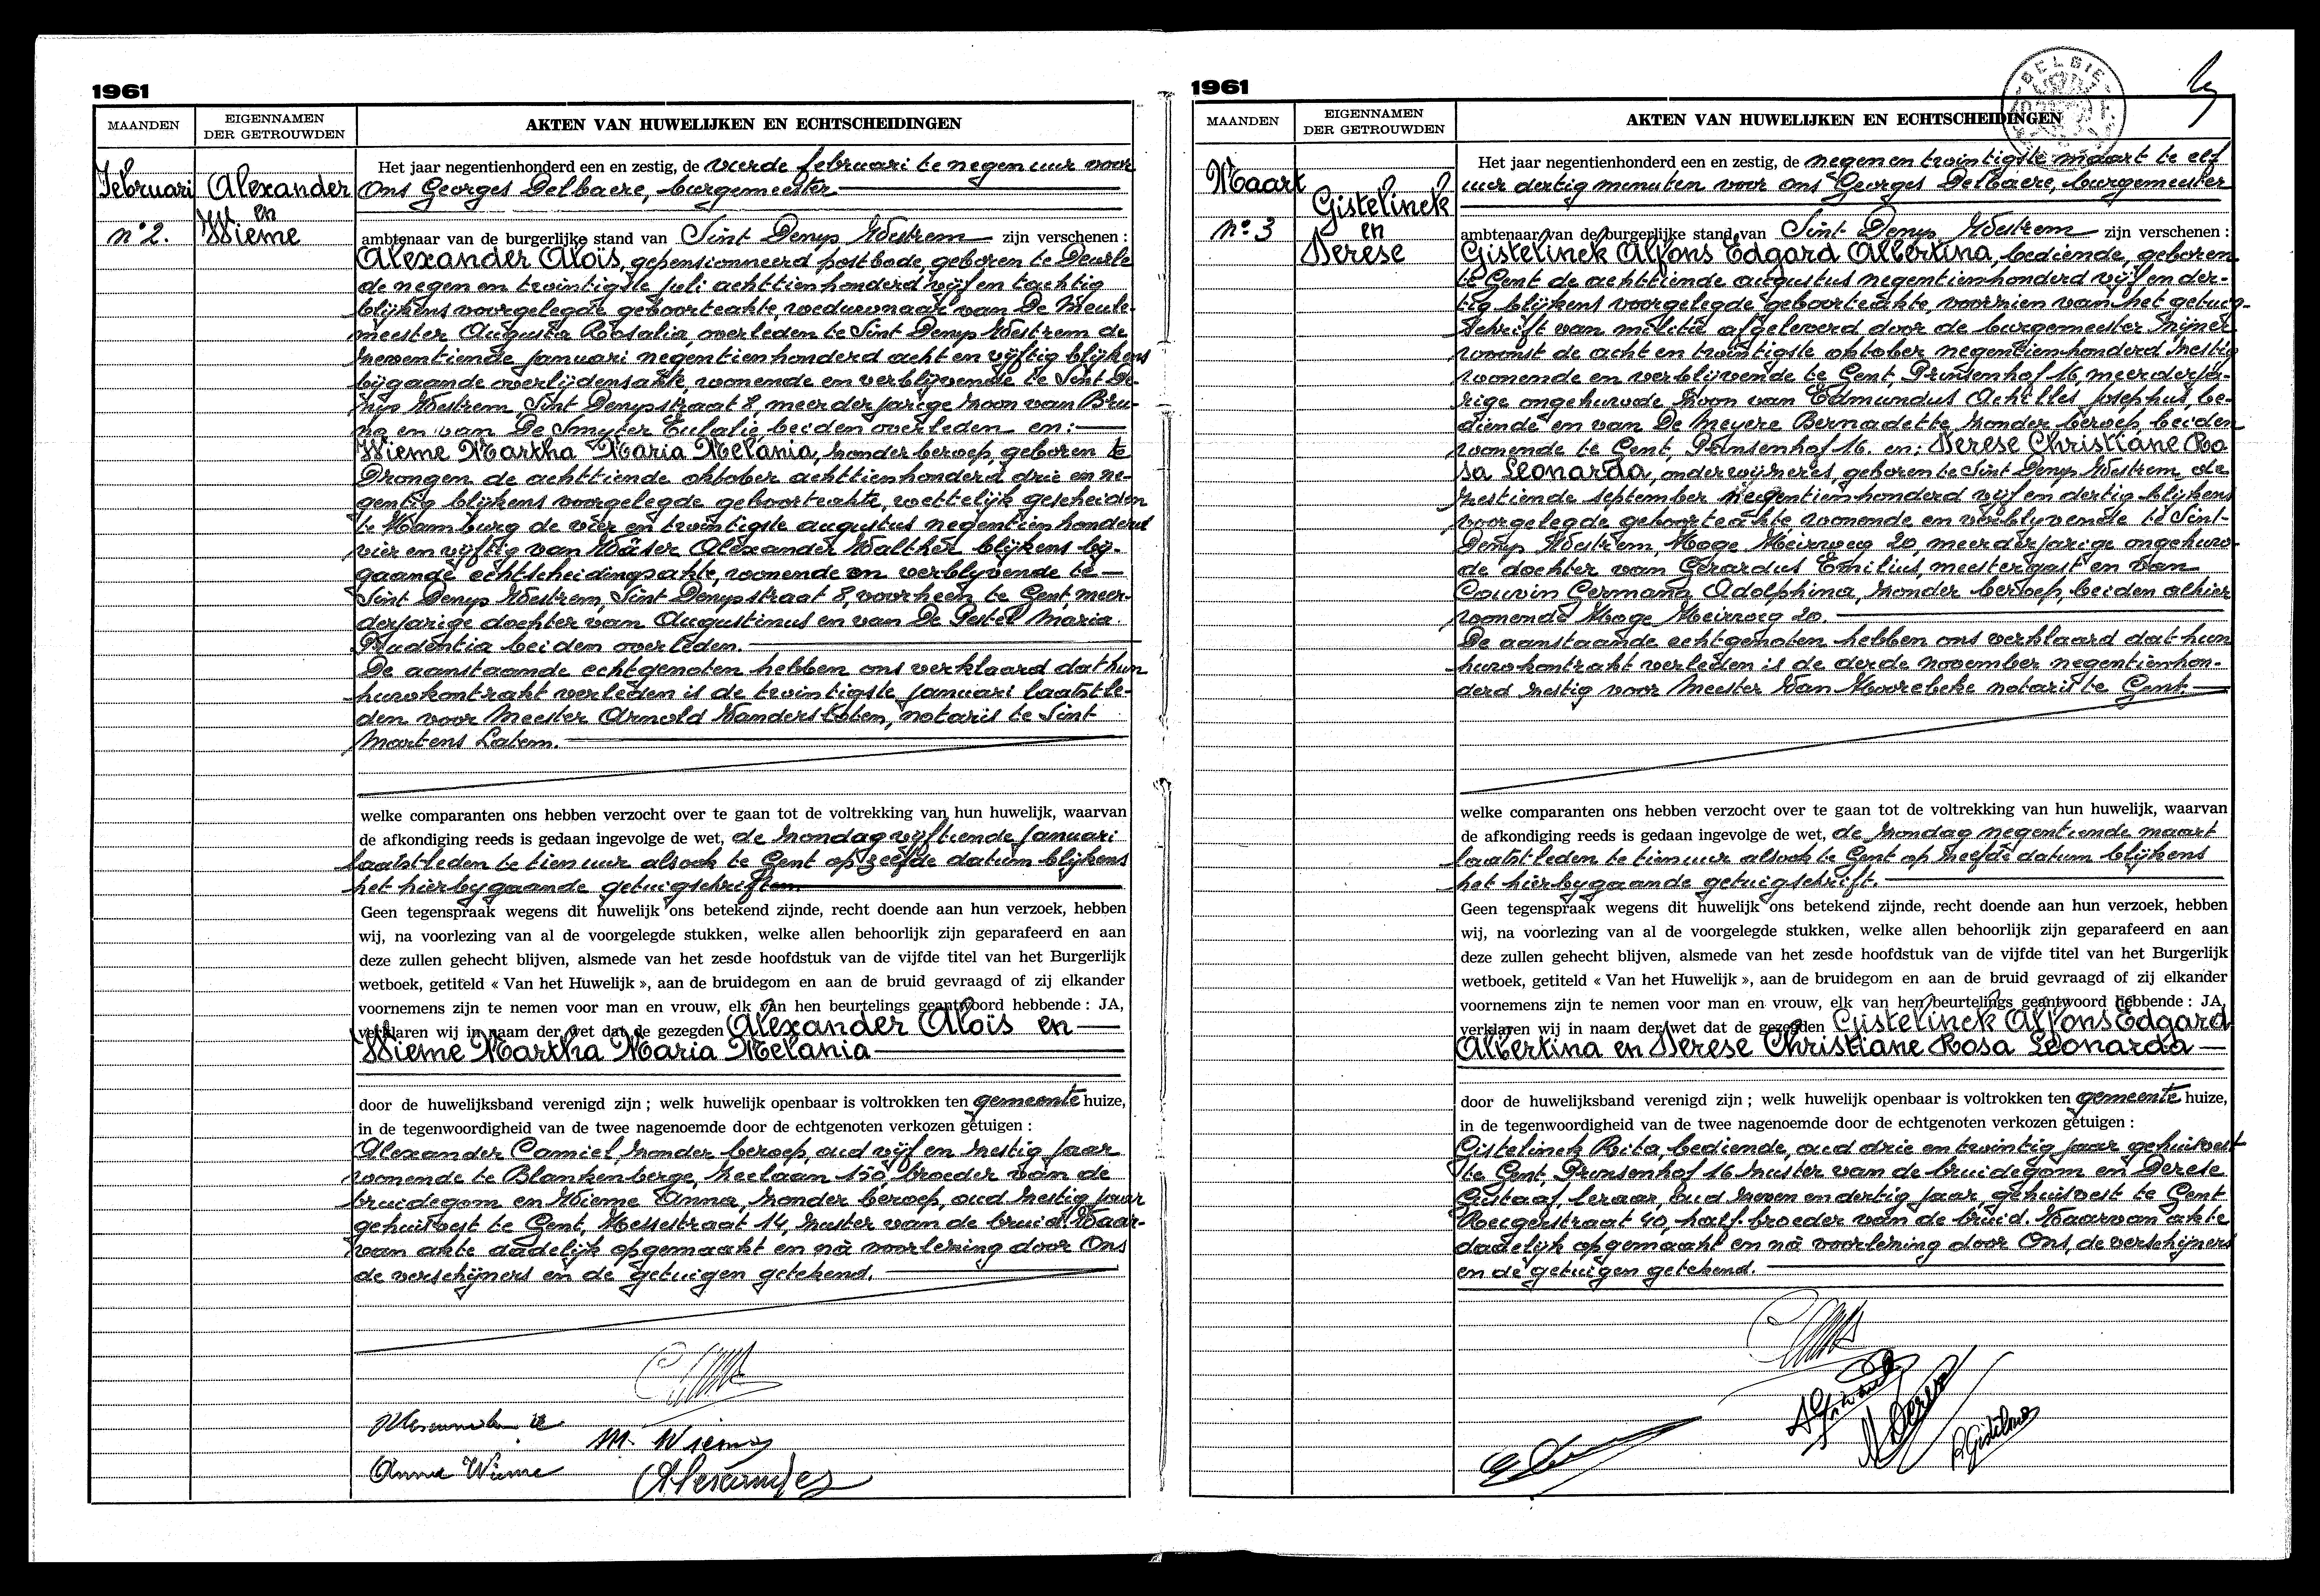 1961
MAANDEN
EIGENNAMEN
DER GETROUWDEN
AKTEN VAN HUWELIJKEN EN ECHTSCHEIDINGEN
Februari
n° 2.
Alexander
en
Wieme
Het jaar negentienhonderd een en zestig, de vierde februari te negen uur voor
Ons Georges Delbaere, burgemeester
ambtenaar van de burgerlijke stand van Sint Denys Westrem zijn verschenen :
Alexander Aloïs, gepensionneerd postbode, geboren te Deurle
de negen en twintigste juli achttienhonderd vijf en tachtig
blijkens voorgelegde geboorteakte, weduwnaar van De Meule-
meester Augusta Rosalia, overleden te Sint Denys Westrem de
zeventiende januari negentienhonderd acht en vijftig blijkens
bijgaande overlijdensakte, wonende en verblijvende te Sint De-
nys Westrem, Sint Denysstraat 8, meerderjarige zoon van Bru-
no en van De Smyter Eulalie, beiden overleden en:
Wieme Martha Maria Melania, zonder beroep, geboren te
Drongen de achttiende oktober achttienhonderd drie en ne-
gentig blijkens voorgelegde geboorteakte, wettelijk gescheiden
te Hamburg de vier en twintigste augustus negentienhonderd
vier en vijftig van Wäser Alexander Walther blijkens bij-
gaande echtscheidingsakte, wonende en verblijvende te
Sint Denys Westrem, Sint Denysstraat 8, voorheen te Gent, meer-
derjarige dochter van Augustinus en van De Pestel Maria
Prudentia beiden overleden.
De aanstaande echtgenoten hebben ons verklaard dat hun
huwkontrakt verleden is de twintigste januari laatstle-
den voor Meester Arnold Vanderstoten, notaris te Sint
Martens Latem.
welke comparanten ons hebben verzocht over te gaan tot de voltrekking van hun huwelijk, waarvan
de afkondiging reeds is gedaan ingevolge de wet, de zondag vijftiende januari
laatstleden te tien uur alsook te Gent op zelfde datum blijkens
het hierbijgaande getuigschriften
Geen tegenspraak wegens dit huwelijk ons betekend zijnde, recht doende aan hun verzoek, hebben
wij, na voorlezing van al de voorgelegde stukken, welke allen behoorlijk zijn geparafeerd en aan
deze zullen gehecht blijven, alsmede van het zesde hoofdstuk van de vijfde titel van het Burgerlijk
wetboek, getiteld « Van het Huwelijk », aan de bruidegom en aan de bruid gevraagd of zij elkander
voornemens zijn te nemen voor man en vrouw, elk van hen beurtelings geantwoord hebbende : JA,
verklaren wij in naam der wet dat de gezegden Alexander Aloïs en
Wieme Martha Maria Melania
door de huwelijksband verenigd zijn ; welk huwelijk openbaar is voltrokken ten gemeente huize,
in de tegenwoordigheid van de twee nagenoemde door de echtgenoten verkozen getuigen :
Alexander Camiel, zonder beroep, oud vijf en zestig jaar
wonende te Blankenberge, Zeelaan 150, broeder van de
bruidegom en Wieme Anna, zonder beroep, oud zestig jaar
gehuisvest te Gent, Hessestraat 14, zuster van de bruid. Waar-
van akte dadelijk opgemaakt en nà voorlezing door Ons
de verschijners en de getuigen getekend.
M. Wieme
Anna Wieme
Alexander
1961
BELGIE
MAANDEN
EIGENNAMEN
DER GETROUWDEN
AKTEN VAN HUWELIJKEN EN ECHTSCHEIDINGEN
Maart
n° 3
Gistelinck
en
Derese
Het jaar negentienhonderd een en zestig, de negen en twintigste maart te elf
uur dertig minuten voor ons Georges Delbaere, burgemeester
ambtenaar van de burgerlijke stand van Sint Denys Westrem zijn verschenen :
Gistelinck Alfons Edgard Albertina, bediende, geboren
te Gent de achttiende augustus negentienhonderd vijf en der-
tig blijkens voorgelegde geboorteakte, voorzien van het getuig-
schrift van militie afgeleverd door de burgemeester zijner
woonst de acht en twintigste oktober negentienhonderd zestig
wonende en verblijvende te Gent, Prinsenhof 16, meerderja-
rige ongehuwde zoon van Edmundus Achilles Josephus, be-
diende en van De Meyere Bernadette zonder beroep, beiden
wonende te Gent, Prinsenhof 16. en: Derese Christiane Ro
sa Leonarda, onderwijzeres, geboren te Sint Denys Westrem de
zestiende september negentienhonderd vijf en dertig blijkens
voorgelegde geboorteakte wonende en verblijvende te Sint-
Denys Westrem, Hoge Heirweg 20, meerderjarige ongehuw-
de dochter van Gerardus Emilius, meestergast en van
Couvin Germana Adolphina, zonder beroep, beiden alhier
wonende Hoge Heirweg 20.
De aanstaande echtgenoten hebben ons verklaard dat hun
huwkontrakt verleden is de derde november negentienhon-
derd zestig voor Meester Van Hoorebeke notaris te Gent.
welke comparanten ons hebben verzocht over te gaan tot de voltrekking van hun huwelijk, waarvan
de afkondiging reeds is gedaan ingevolge de wet, de zondag negentiende maart
laatstleden te tien uur alsook te Gent op zelfde datum blijkens
het hierbijgaande getuigschrift.
Geen tegenspraak wegens dit huwelijk ons betekend zijnde, recht doende aan hun verzoek, hebben
wij, na voorlezing van al de voorgelegde stukken, welke allen behoorlijk zijn geparafeerd en aan
deze zullen gehecht blijven, alsmede van het zesde hoofdstuk van de vijfde titel van het Burgerlijk
wetboek, getiteld « Van het Huwelijk », aan de bruidegom en aan de bruid gevraagd of zij elkander
voornemens zijn te nemen voor man en vrouw, elk van hen beurtelings geantwoord hebbende : JA,
verklaren wij in naam der wet dat de gezegden Gistelinck Alfons Edgard
Albertina en Derese Christiane Rosa Leonarda
door de huwelijksband verenigd zijn ; welk huwelijk openbaar is voltrokken ten gemeente huize,
in de tegenwoordigheid van de twee nagenoemde door de echtgenoten verkozen getuigen :
Gistelinck Rita, bediende, oud drie en twintig jaar gehuisvest
te Gent, Prinsenhof 16 zuster van de bruidegom en Derese
Gustaaf, leraar, oud zeven en dertig jaar, gehuisvest te Gent
Reigerstraat 40, half-broeder van de bruid. Waarvan akte
dadelijk opgemaakt en nà voorlezing door Ons, de verschijners
en de getuigen getekend.
R. Gistelinck